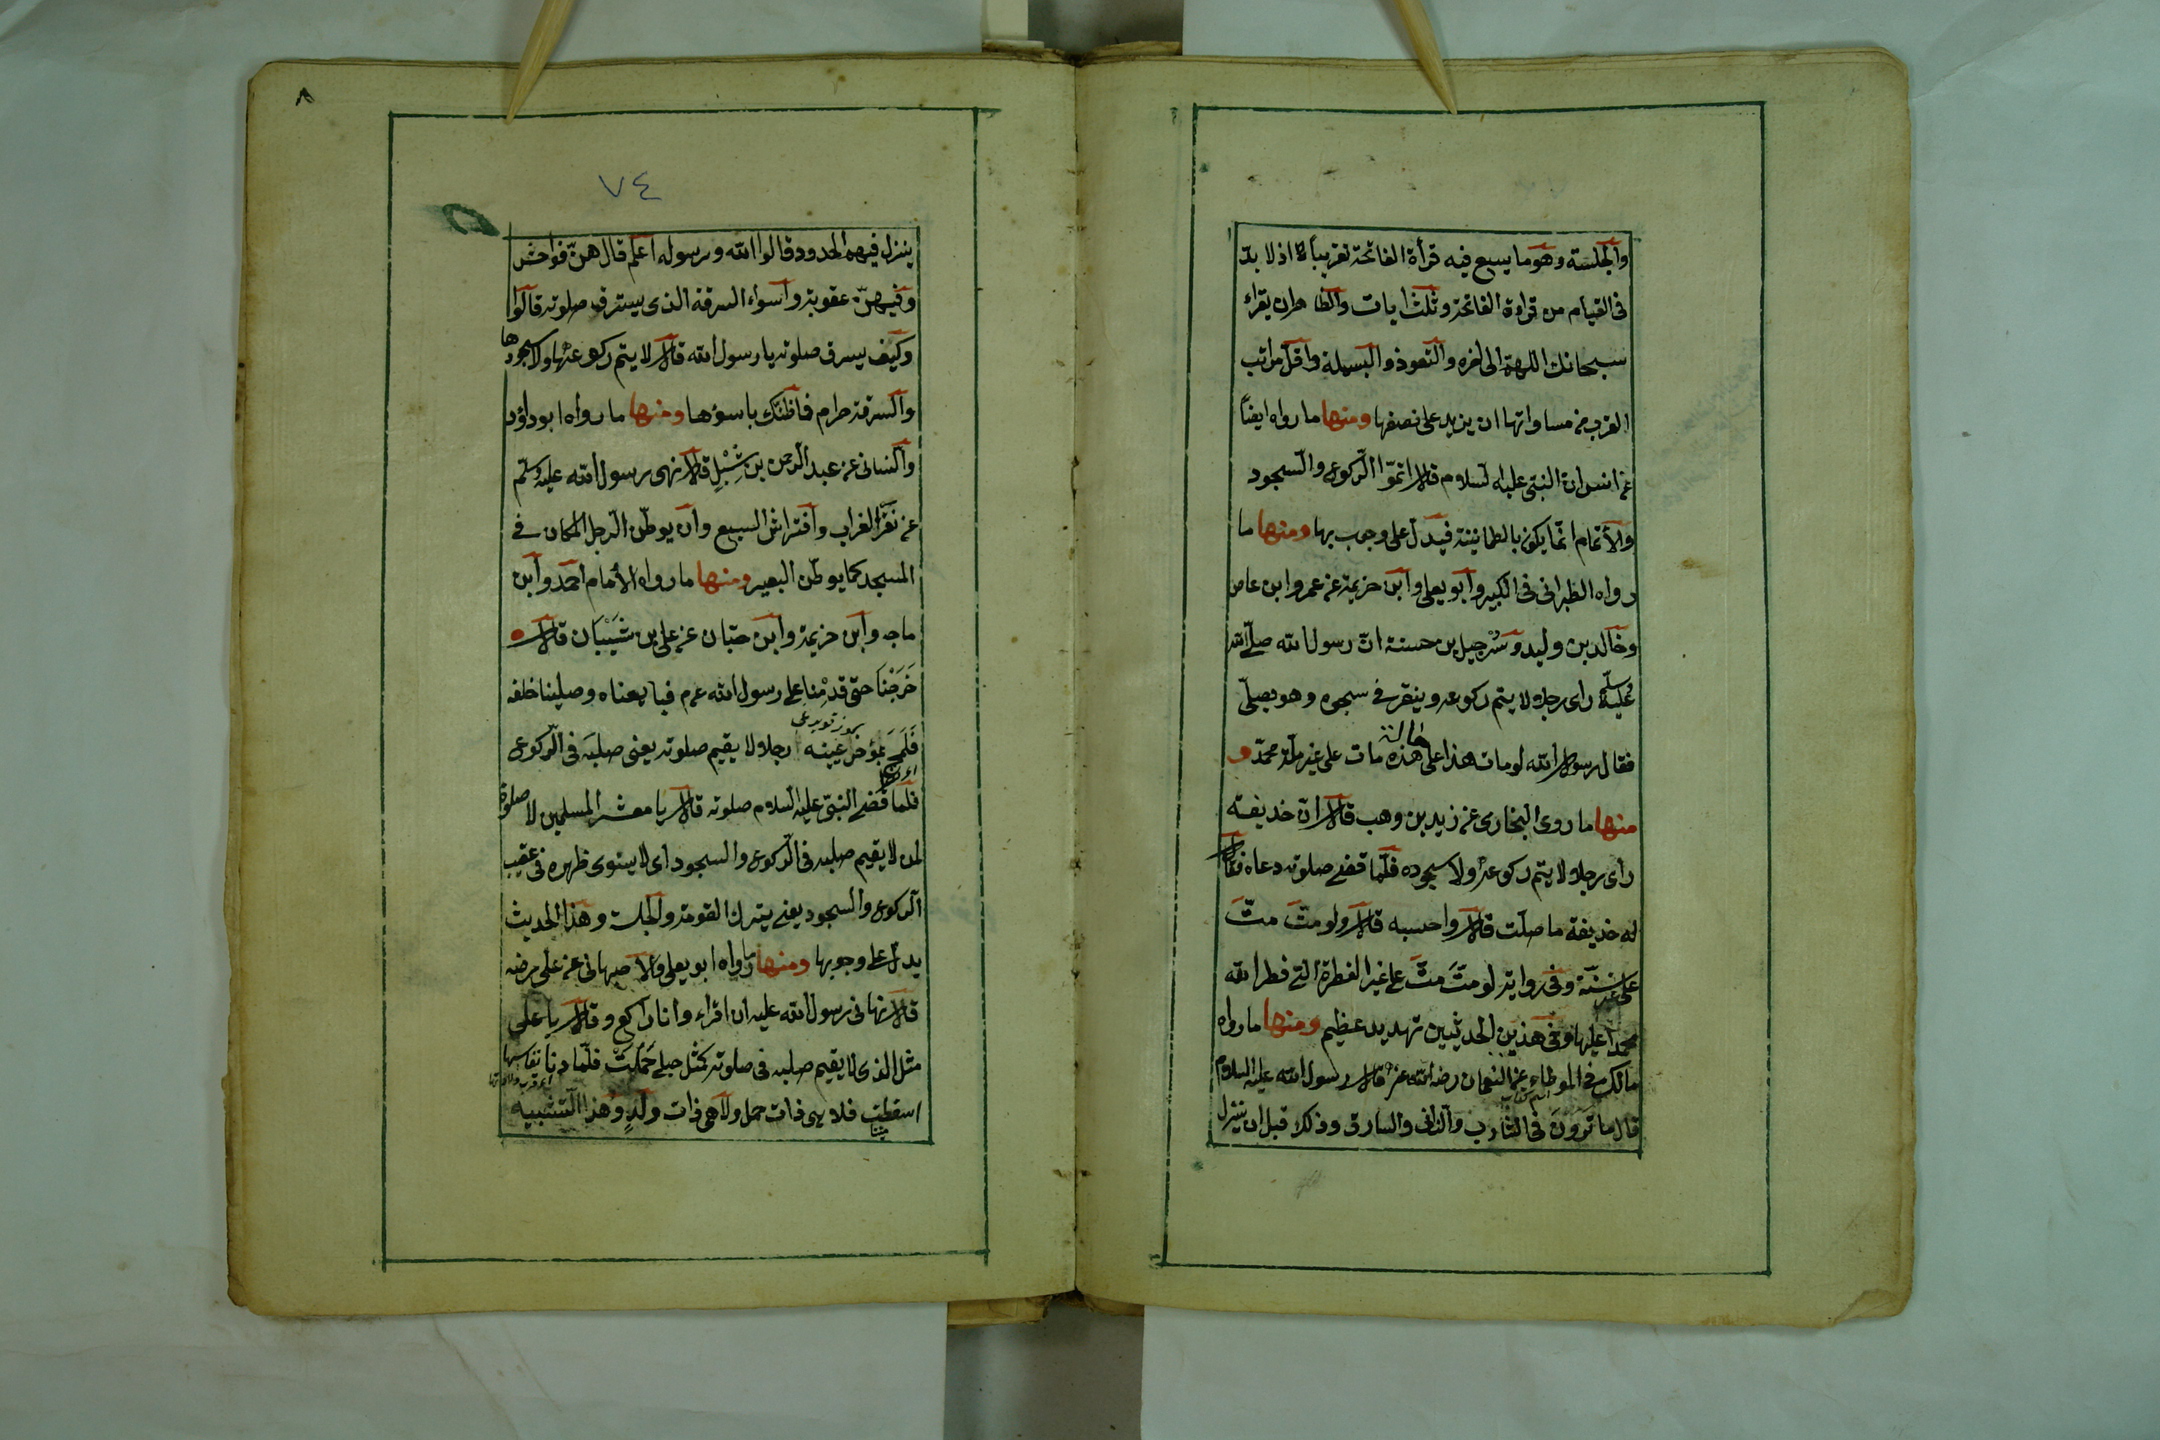 والجلسة وهو ما يسع فيه قرأة الفاتحة تقريباً اذ لا بد
فى القيام من قراءة الفاتحة وثلث ايات والظاهر ان يقراء
سبحانك اللهم الى اخره والتعوذ والبسملة واقل مراتب
القرب من مساواتها ان يزيد على نصفها ومنها ما رواه ايضاً
عن انس ان النبى عليه السلام قال اتموا الركوع والسجود
والأتمام انما يكون بالطمانينة فيدل على وجوب بها ومنها ما
رواه الطبرانى فى الكبير وابو يعلى وابن خزيمة عن عمرو ابن عاص
وخالد بن وليد وشرجيل بن حسنة ان رسول الله صلى الله
عليه وسلم راى رجلا لا يتم ركوعه وينقر فى سجوده وهو يصلى
فقال رسول الله لو مات هذا على هذه حالته مات على غير ملة محمد و
منها ما روى البخارى عن زيد بن وهب قال ان خذيفة
راى رجلا لا يتم ركوعه ولا سجوده فلما قضى صلوته دعاه فقال
له خذيفة ما صلت قال واحسبه قال ولو متَّ متَّ
على غير سنة وفى رواية لو متَّ متَّ على غير الفطرة التى فطر الله
محمدا عليها وفى هذين الحديثين تهديد عظيم ومنها ما رواه
مالك فى الموطاء عن النعمان رضى الله عنه قال رسول الله عليه السلام
اسم كتاب
قال ما ترون فى الشارب والزانى والسارق وذلك قبل ان ينزل
٨
٧٤
ينزل فيهم الحدود قالوا الله ورسوله اعلم قال هنّ فواحش
وفيهنّ عقوبة واسواء السرقة الذى يسترق صلوته قالوا
وكيف يسرق صلوته يا رسول الله قال لا يتم ركوعها ولا سجودها
والسرقة حرام فاظنك باسوءها ومنها ما رواه ابو داؤد
والنسائى عن عبد الرحمن بن شِبْلٍ قال نهى رسول الله عليه وسلم
عن نقر الغراب وافتراش السبع وان يوطن الرجل المكان فى
المسجد كما يوطن البعير ومنها ما رواه الأمام احمد وابن
ماجه وابن خزيمة وابن حبّان عن على بن شَيْبَان قال
خَرَجْنَا حتى قدِمْنا على رسول الله عم فبايعناه وصلينا خلفه
فَلَمَحَ بمؤخر عينه رجلا لا يقيم صلوته يعنى صلبَه فى الركوع
فلما قضى النبى عليه السلام صلوته قال يا معشر المسلمين لا صلوة
لمن لا يقيم صلبه فى الركوع والسجود اى لا يستوى ظهره فى عقيب
الركوع والسجود يعنى يترك القومة والجلسة وهذا الحديث
يدل على وجوبها ومنها ما رواه ابو يعلى والأصبهانى عن على رضه
قال نهانى رسول الله عليه ان اقراء وانا راكع وقال يا على
مثل الذى لا يقيم صلبه فى صلوته كمثل حبلى حَمَلَتْ فلمّا دنا نفاسها
اى قرب ولادتها
اسقطت فلا هى ذات حمل ولا هى ذات ولَدٍ وهذا التشبيه